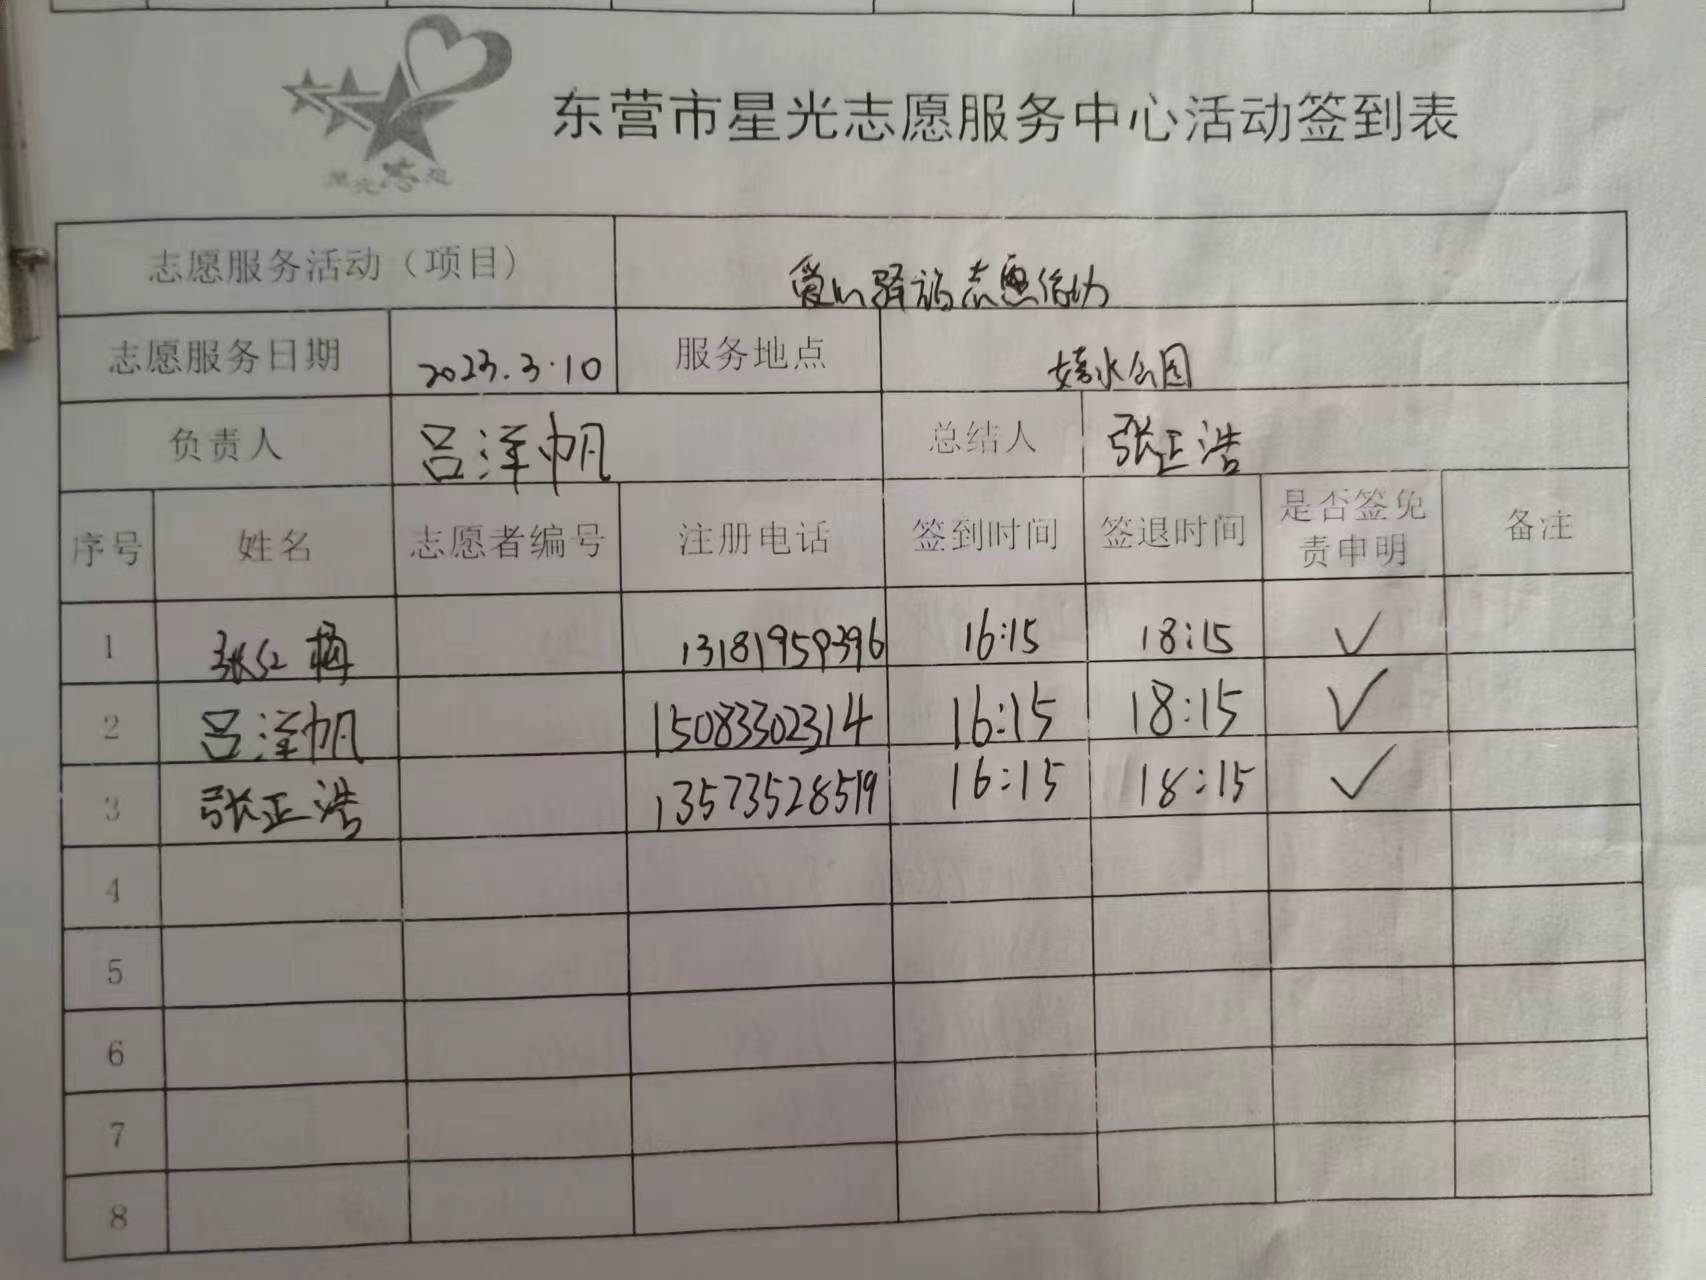 星光志愿
东营市星光志愿服务中心活动签到表
志愿服务活动（项目） 爱心驿站志愿活动
志愿服务日期 2023.3.10 服务地点 嬉水公园
负责人 吕泽帆 总结人 张正浩
序号 姓名 志愿者编号 注册电话 签到时间 签退时间 是否签免责申明 备注
1 张红梅 13181959396 16:15 18:15 ✓
2 吕泽帆 15083302314 16:15 18:15 ✓
3 张正浩 13573528519 16:15 18:15 ✓
4
5
6
7
8